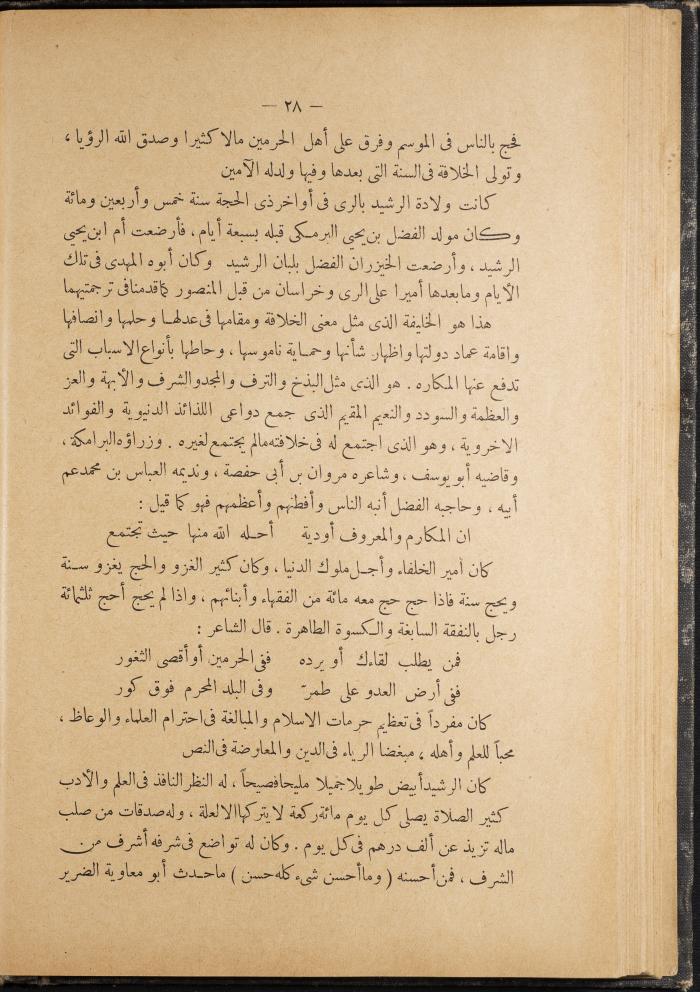 — ٢٨ —
فحج بالناس فى الموسم وفرق على أهل الحرمين مالا كثيرا وصدق الله الرؤيا ،
وتولى الخلافة فى السنة التى بعدها وفيها ولد له الآمين
كانت ولادة الرشيد بالرى فى أواخر ذى الحجة سنة خمس وأربعين ومائة
وكان مولد الفضل بن يحيى البرمكى قبله بسبعة أيام ، فأرضعت أم ابن يحيى
الرشيد ، وأرضعت الخيزران الفضل بلبان الرشيد وكان أبوه المهدى فى تلك
الأيام وما بعدها أميرا على الرى وخراسان من قبل المنصور كما قدمنا فى ترجمتيهما
هذا هو الخليفة الذى مثل معنى الخلافة ومقامها فى عدلها وحلمها وانصافها
واقامة عماد دولتها واظهار شأنها وحماية ناموسها ، وحاطها بأنواع الاسباب التى
تدفع عنها المكاره . هو الذى مثل البذخ والترف والمجد والشرف والأبهة والعز
والعظمة والسودد والنعيم المقيم الذى جمع دواعى اللذائذ الدنيوية والفوائد
الاخروية ، وهو الذى اجتمع له فى خلافته مالم يجتمع لغيره . وزراؤه البرامكة ،
وقاضيه أبو يوسف ، وشاعره مروان بن أبى حفصة ، ونديمه العباس بن محمد عم
أبيه ، وحاجبه الفضل أنبه الناس وأفطنهم وأعظمهم فهو كما قيل :
ان المكارم والمعروف أودية أحله الله منها حيث تجتمع
كان أمير الخلفاء وأجل ملوك الدنيا ، وكان كثير الغزو والحج يغزو سنة
ويحج سنة فاذا حج حج معه مائة من الفقهاء وأبنائهم ، واذا لم يحج أحج ثلثمائة
رجل بالنفقة السابغة والكسوة الطاهرة . قال الشاعر :
فمن يطلب لقاءك أو يرده ففى الحرمين أو أقصى الثغور
ففى أرض العدو على طمرّ وفى البلد المحرم فوق كور
كان مفرداً فى تعظيم حرمات الاسلام والمبالغة فى احترام العلماء والوعاظ ،
محباً للعلم وأهله ، مبغضا الرياء فى الدين والمعارضة فى النص
كان الرشيد أبيض طويلا جميلا مليحا فصيحاً ، له النظر النافذ فى العلم والأدب
كثير الصلاة يصلى كل يوم مائة ركعة لا يتركها الا لعلة ، وله صدقات من صلب
ماله تزيد عن ألف درهم فى كل يوم . وكان له تواضع فى شرفه أشرف من
الشرف ، فمن أحسنه ( وما أحسن شىء كله حسن ) ما حدث أبو معاوية الضرير